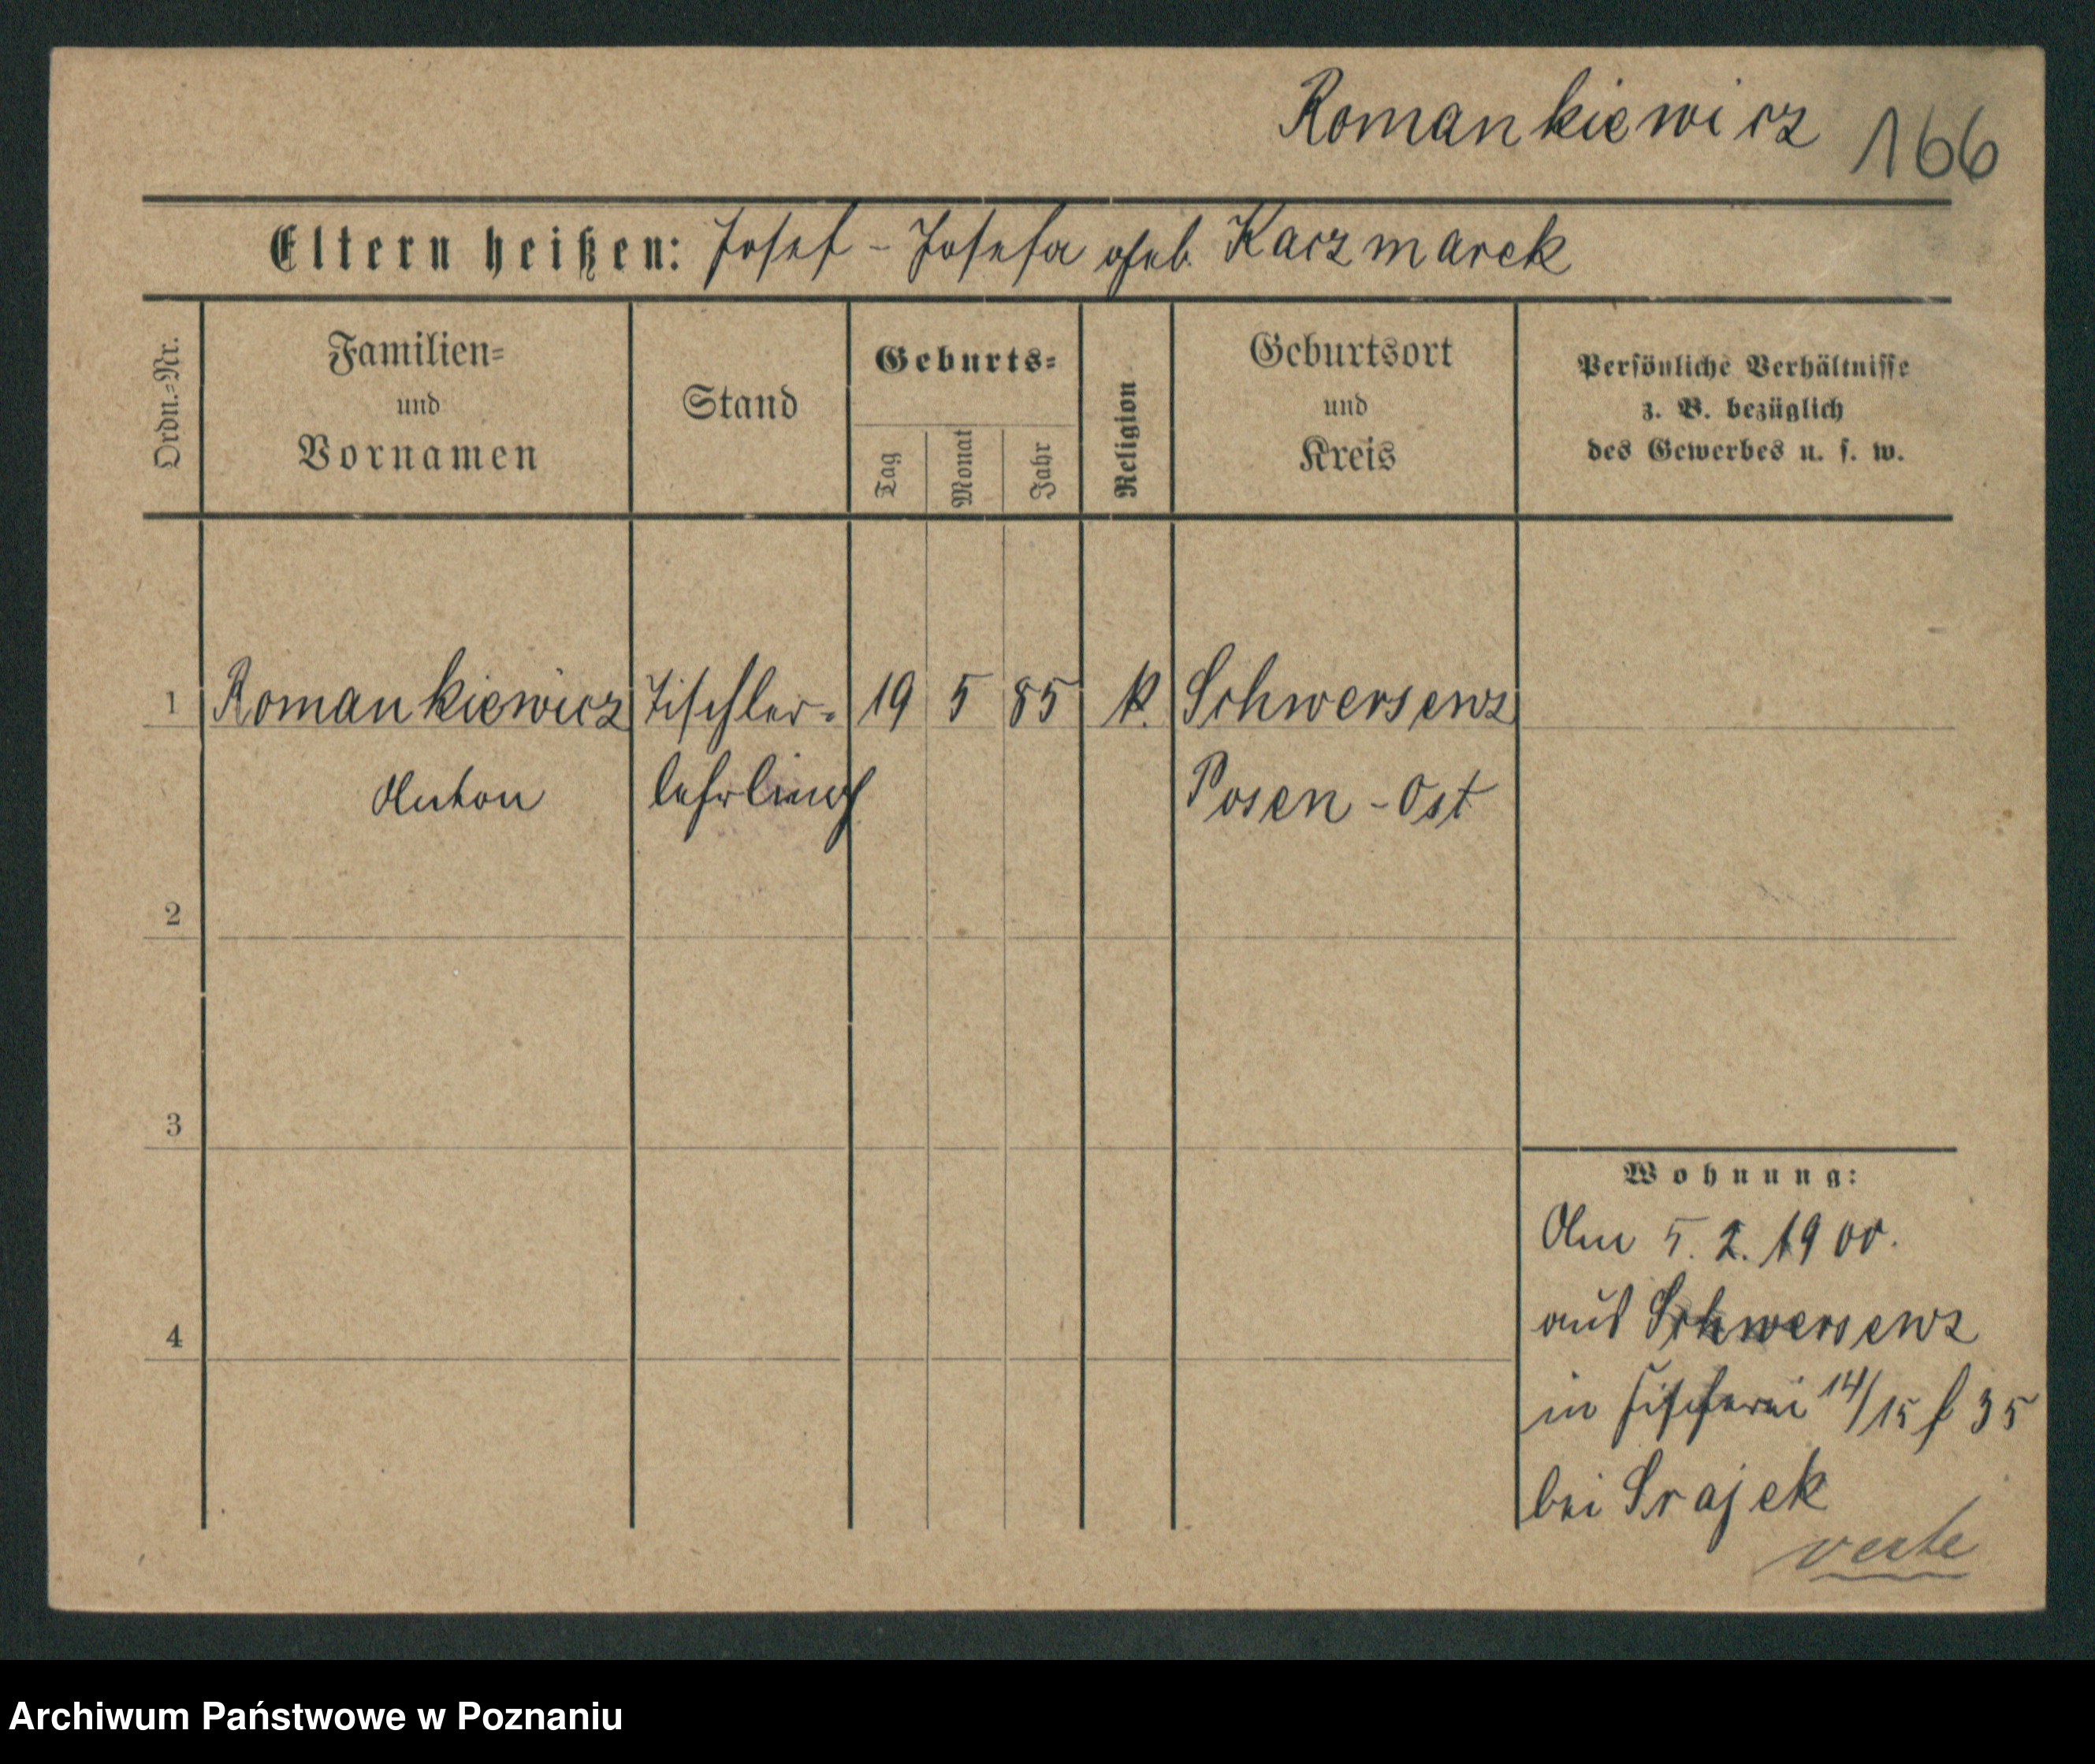 Romankiewicz 166
Eltern heißen: Josef - Josefa geb. Kaczmarek
Ordn.-Nr.
Familien-
und
Vornamen
Stand
Geburts-
Tag
Monat
Jahr
Religion
Geburtsort
und
Kreis
Persönliche Verhältnisse
z. B. bezüglich
des Gewerbes u. s. w.
1 Romankiewicz Tischler- 19 5 85 k. Schwersenz
Anton lehrling Posen-Ost
2
3
4
Wohnung:
Am 5. 2. 1900.
aus Schwersenz
in Fischerei 14/15 35
bei Srajek
verte
Archiwum Państwowe w Poznaniu